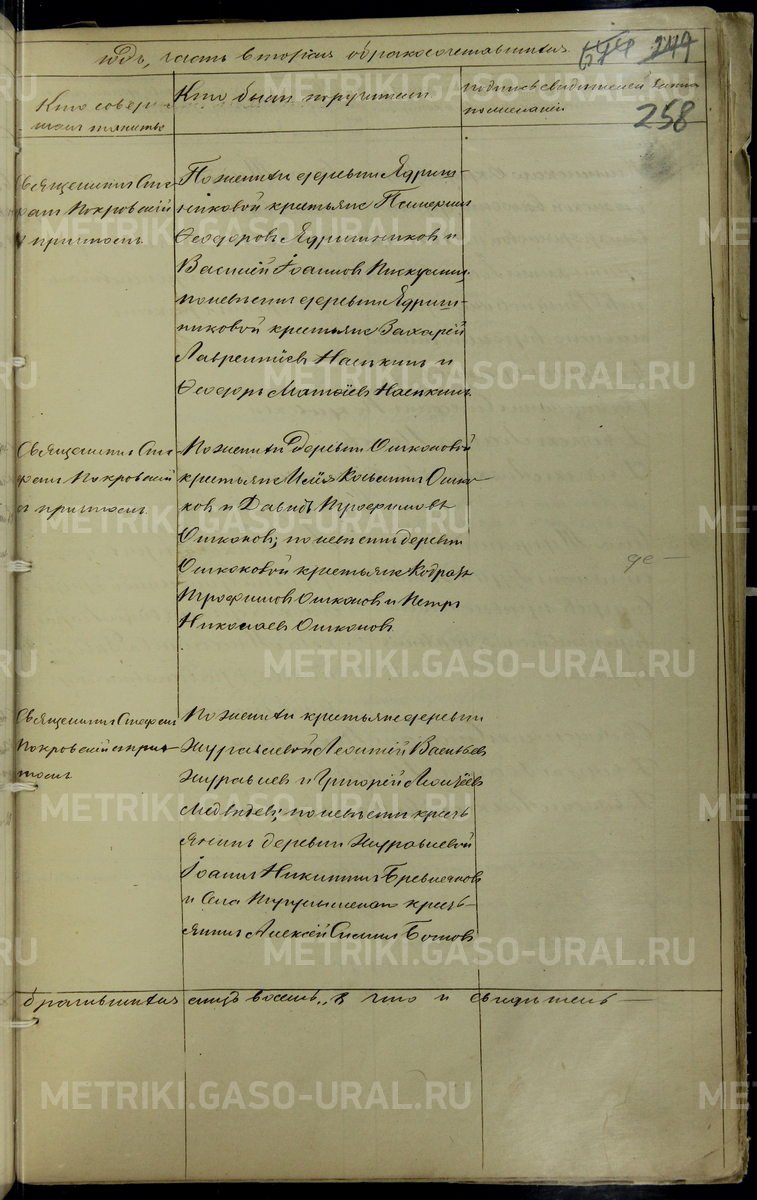 годъ, часть вторая о бракосочетавшихся
249
258
Кто совер-
шал таинство
Кто были поручители
подпись свидетелей записи
по желанію
Священникъ Сте-
фанъ Покровскій
с причтомъ
По женихѣ деревни Ядриш-
никовой крестьяне
Ѳеодоровъ Ядришников и
Василій Іоаннов Пискунин,
по невѣсте деревни Ядриш-
никовой крестьяне Захарій
Лаврентіев Наепкинъ и
Ѳеодоръ Матѳіев Наепкинъ
Священникъ Сте-
фанъ Покровскій
с причтомъ
По женихѣ Деревни Ошконовой
крестьяне Илія Ошко-
ков и Давидъ Трофимовъ
Ошконов; по невѣсте деревни
Ошконовой крестьяне Кодратъ
Трофимов Ошконов и Петръ
Николаев Ошконовъ
де —
Священникъ Стефанъ
Покровскій с прич-
томъ
По женихѣ крестьяне деревни
Журавлевой Леонтій Васильев
Журавлев и Григорій
Медвѣдев; по невѣсте кресть
янинъ деревни Журавлевой
Іоаннъ Никитинъ Бревенников
и Села кресть-
янинъ Алексій Ботовъ
бракившихся лицъ восемь, в что и свидѣтель —
METRIKI.GASO-URAL.RU